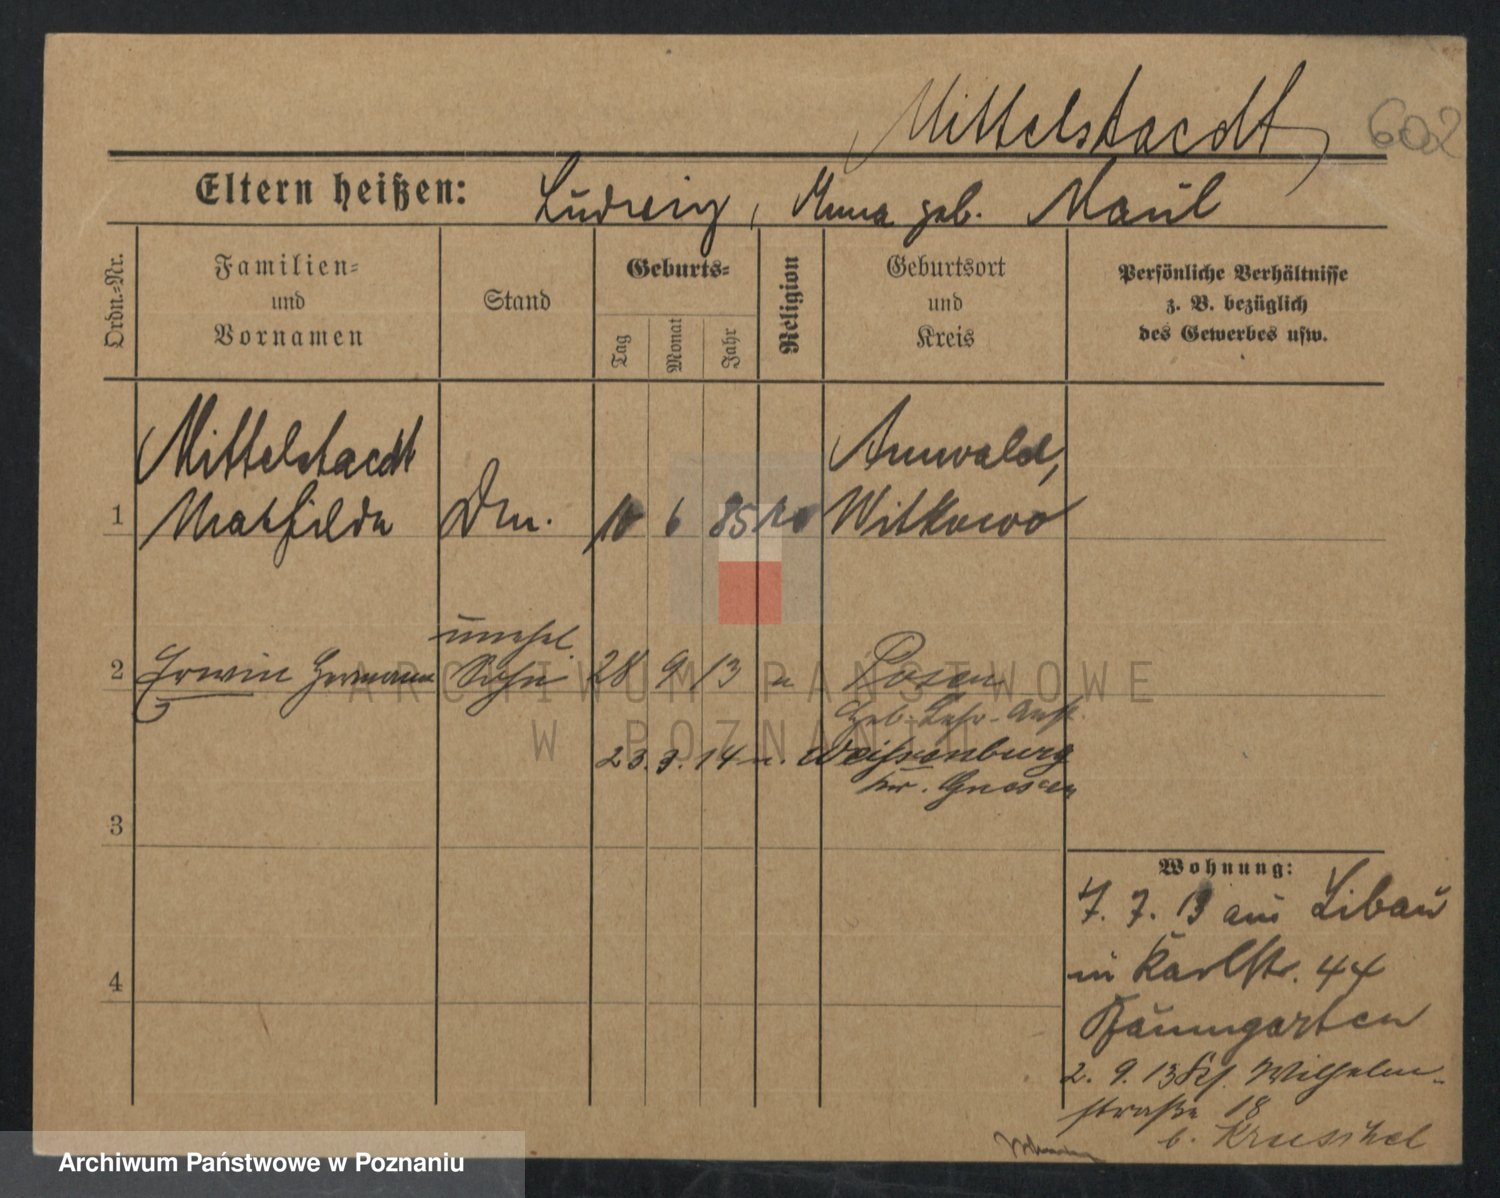 Mittelstaedt
602
Eltern heißen: Ludwig, Anna geb. Maül
Ordn.-Nr.
Familien-
und
Vornamen
Stand
Geburts-
Tag
Monat
Jahr
Religion
Geburtsort
und
Kreis
Persönliche Verhältnisse
z. B. bezüglich
des Gewerbes usw.
Mittelstaedt Arnwald,
1 Mathilde 10 6 85 Witkowo
unehel.
2 Erwin Hermann Sohn 28 9 13 Posen
Geb. Lehr-Anst.
23. 3. 14 Weissenburg
Kr. Gnesen
3
4
Wohnung:
7. 7. 13 aus Libau
in Karlstr. 44
Baumgarten
2. 9. 13 Wilhelm-
straße 18
b. Kruschel
ARCHIWUM PAŃSTWOWE
W POZNANIU
Archiwum Państwowe w Poznaniu